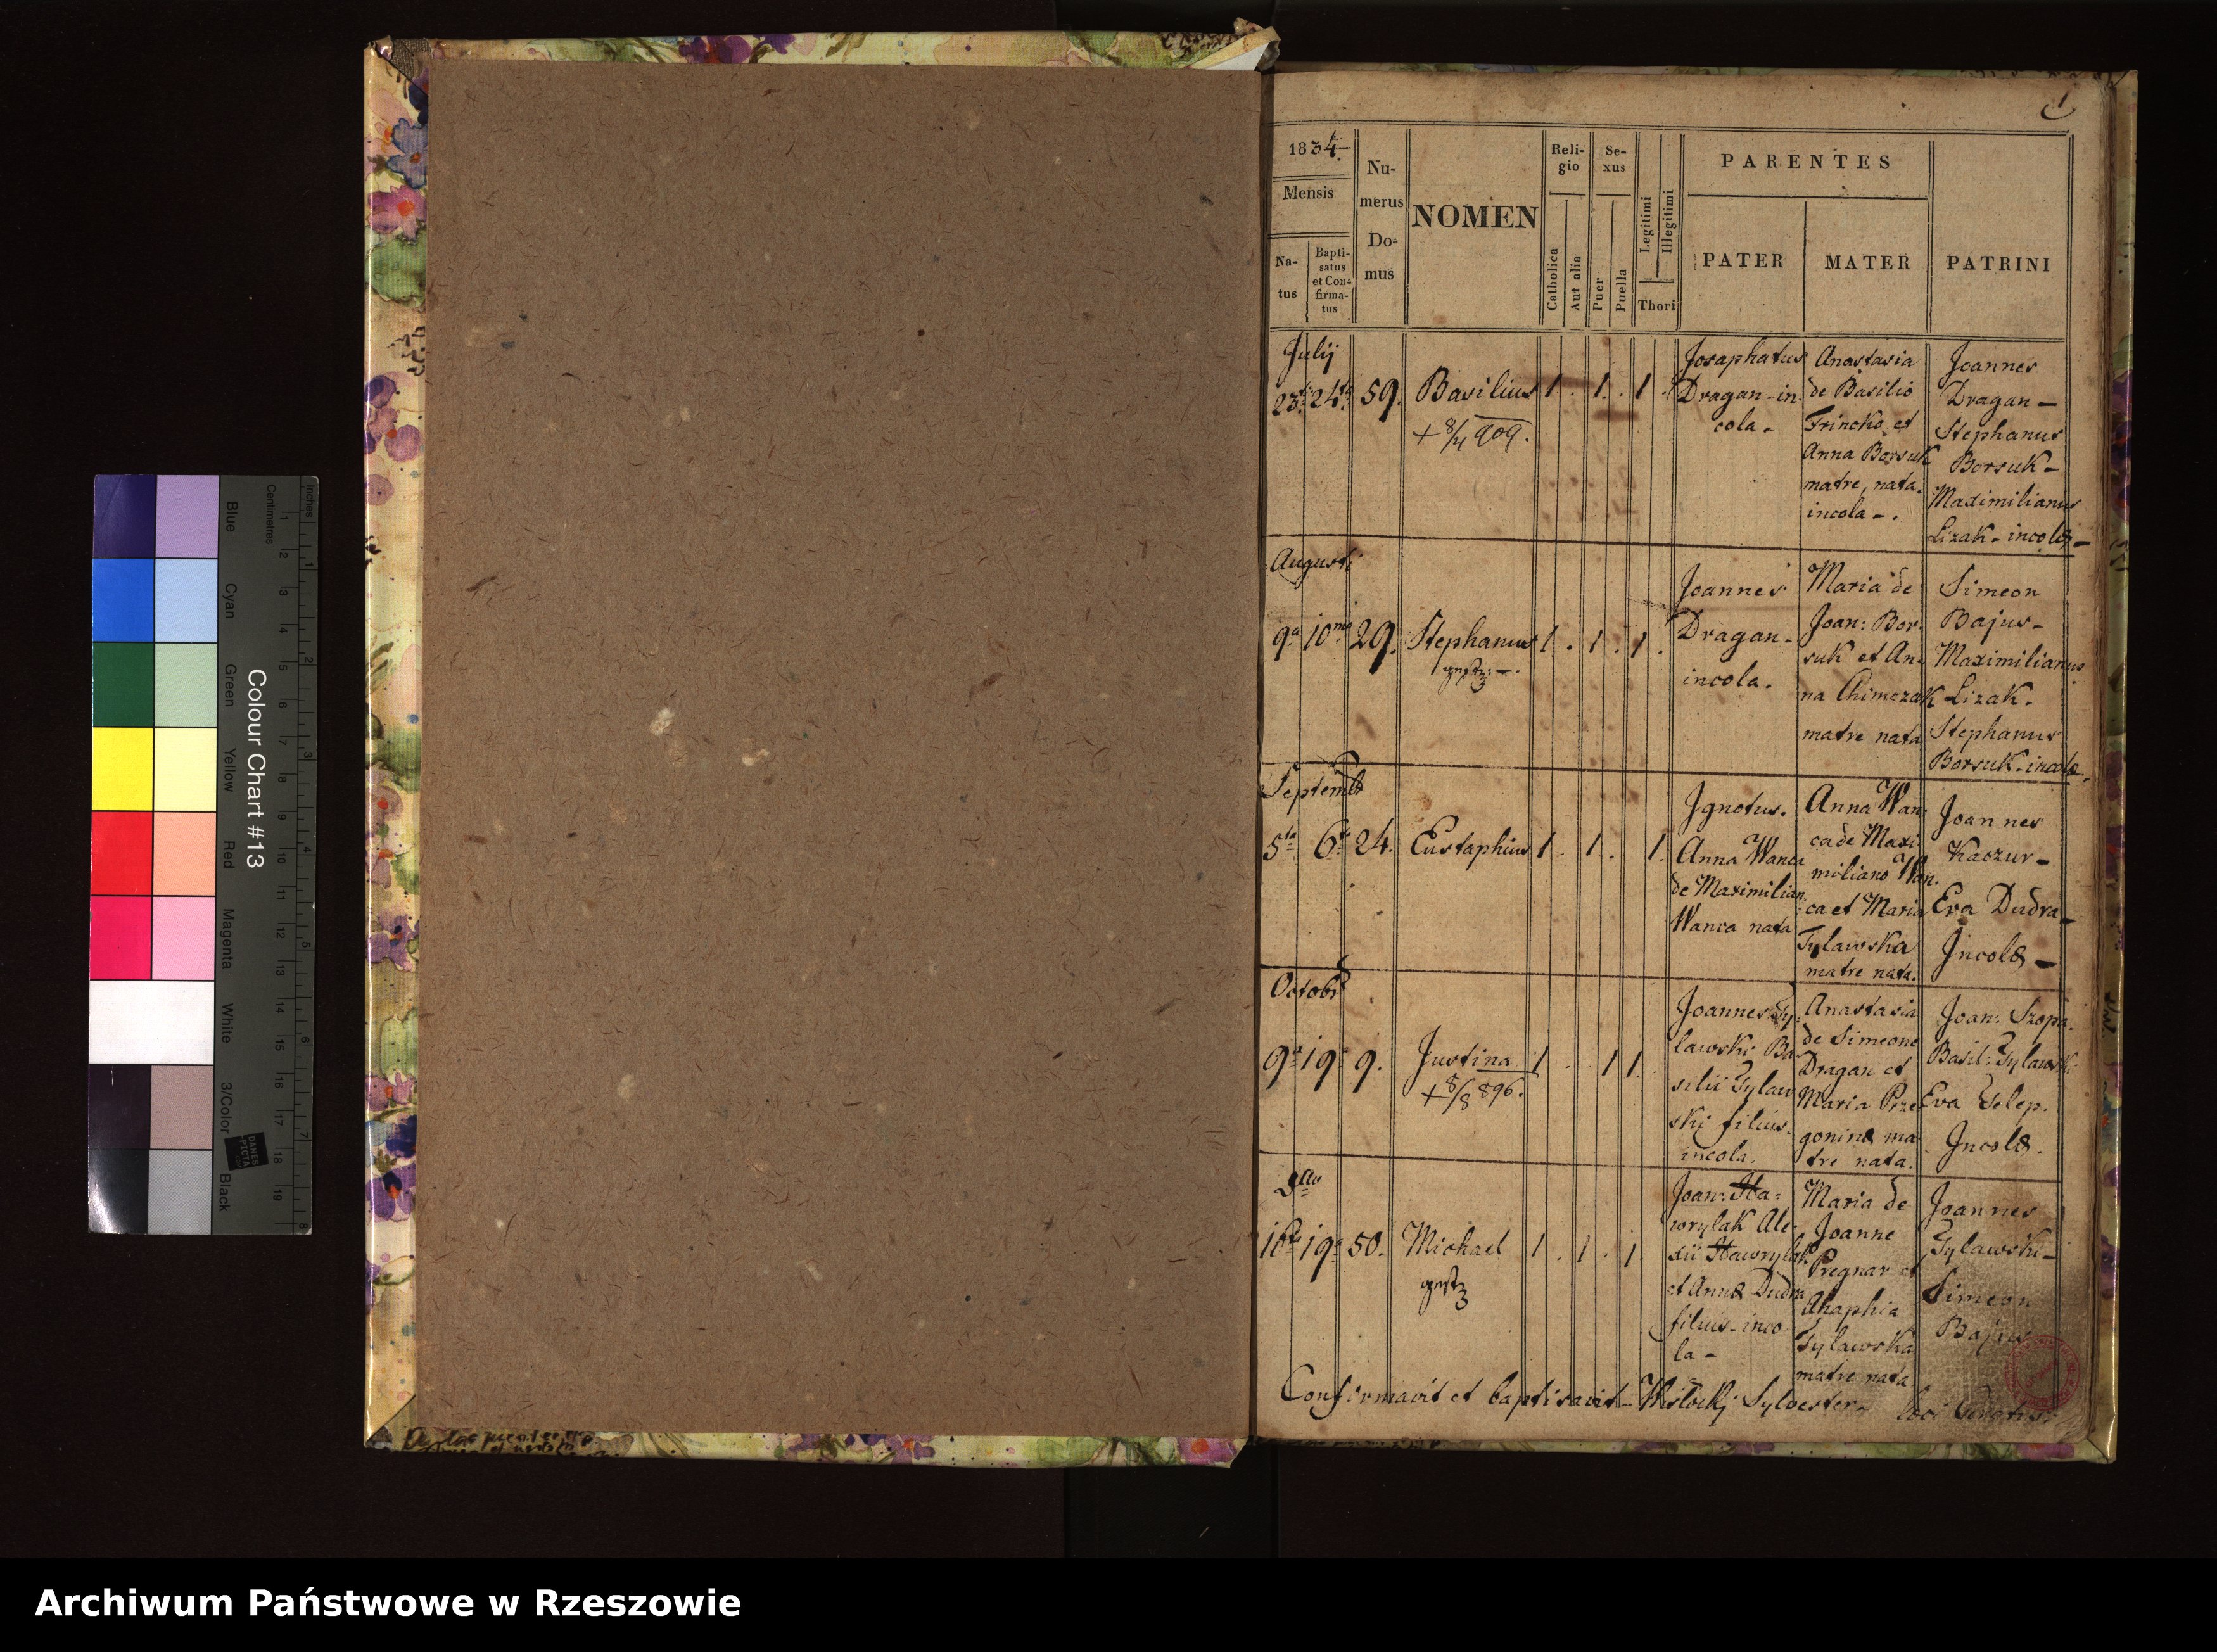 1
1834.
Mensis
Na-
tus
Bapti-
satus
et Con-
firma-
tus
Nu-
merus
Do-
mus
NOMEN
Reli-
gio
Catholica
Aut alia
Se-
xus
Puer
Puella
Legitimi
Illegitimi
Thori
PARENTES
PATER
MATER
PATRINI
Julij
23 24 59. Basilius 1 . 1 . 1 .
+ 8/4 909.
Josaphatus
Dragan - in-
cola .
Anastasia
de Basilio
Trincko et
Anna Borsuk
matre, nata.
incola - .
Joannes
Dragan -
Stephanus
Borsuk -
Maximilianus
Lizak - incolæ -
Augusti
9a 10ma 29. Stephanus 1 . 1 . 1 .
Joannes
Dragan -
incola .
Maria de
Joan: Bor-
suk et An-
na Chimczak
matre nata
Simeon
Bajus -
Maximilianus
Lizak .
Stephanus
Borsuk - incolæ.
Septemb
5ta 6ta 24. Eustaphius 1 . 1 . 1 .
Ignotus.
Anna Wanca
de Maximilian.
Wanca nata
Anna Wan-
ca de Maxi
miliano Wan.
ca et Maria
Tylawska
matre nata.
Joannes
Kaczur -
Eva Dudra -
Incolæ -
Octobr
9a 19 9. Justina 1 . 1 1 .
+ 8/8 896.
Joannes Ty-
lawski Ba
silii Tylaw
ski filius.
incola.
Anastasia
de Simeone
Dragan et
Maria Prze
goninæ ma
tre nata.
Joan: Szopa.
Basil: Tylawski
Eva Telep.
Incolæ .
16 19 50. Michael 1 . 1 . 1
Joan: Ha-
wrylak Ale-
xii Hawrylak
et Annæ Dudra
filius - inco-
la -
Maria de
Joanne
Pregnar et
Ahaphia
Tylawska
matre nata
Joannes
Tylawski -
Simeon
Bajus
Confirmavit et baptisavit - Wisłocki Sylvester - loci
Colour Chart #13
Blue
Cyan
Green
Yellow
Red
Magenta
White
3/Color
Black
Centimetres
Inches
DANES
PICTA
Archiwum Państwowe w Rzeszowie